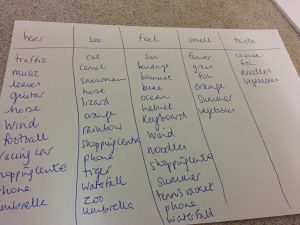 hear
traffic
music
leaves
guitar
horse
wind
football
racing car
phone
umbrella
see
cat
camel
snowmen
horse
lizard
orange
rainbow
shopping centre
phone
tiger
waterfall
zoo
umbrella
feel
sun
bandage
blanket
ocean
helmet
keyboard
wind
noodles
shopping centre
summer
tennis racket
phone
waterfall
smell
flower
fish
orange
summer
vegetables
taste
cheese
fish
noodles
vegetables